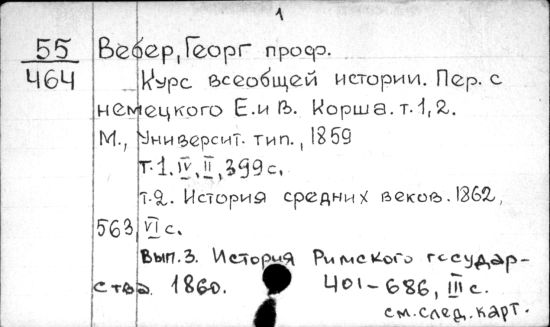 1
55 Вебер, Георг проф.
464 Курс всеобщей истории. Пер. с
немецкого Е. и В. Корша. т. 1, 2.
М., Университ. тип., 1859
Т. 1. IV, II, 399 с.
т. 2. История средних веков. 1862,
563, VI с.
Вып. 3. История Римского государ-
ства. 1860. 401-686, III с.
см. след. карт.